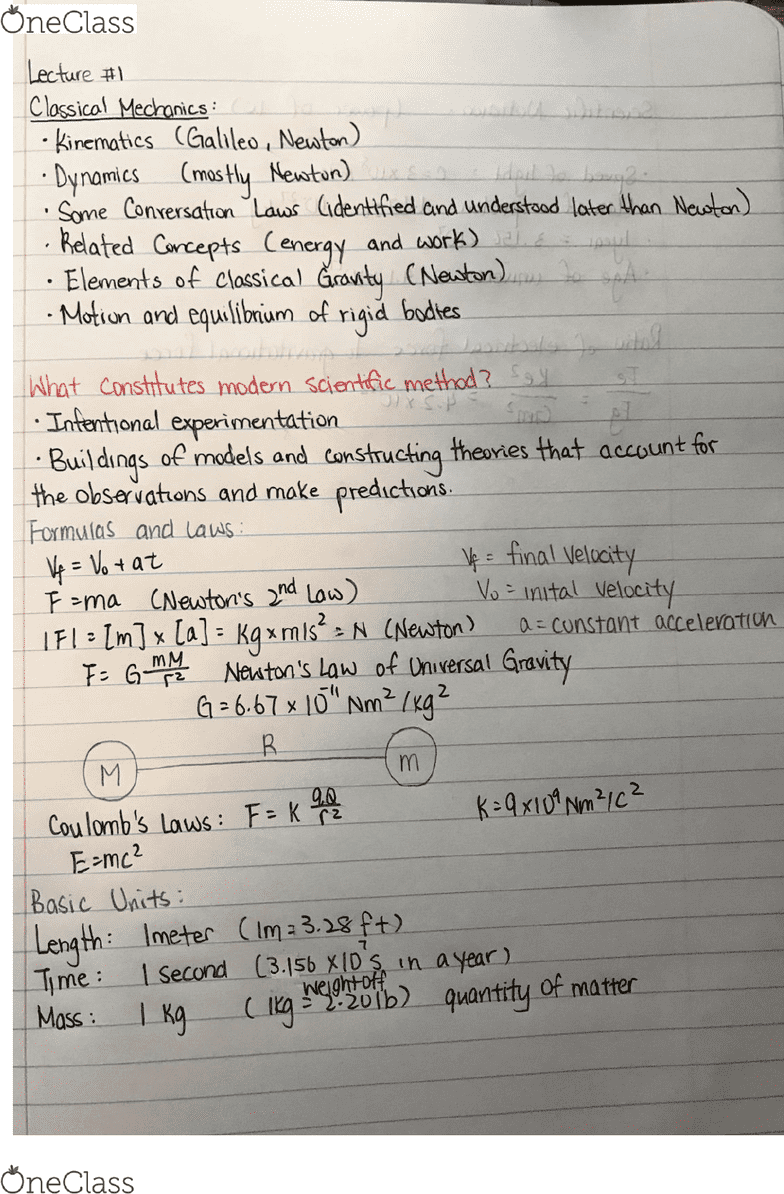 OneClass
Lecture #1
Classical Mechanics:
· Kinematics (Galileo, Newton)
· Dynamics (mostly Newton)
· Some Conversation Laws (identified and understood later than Newton)
· Related Concepts (energy and work)
· Elements of classical Gravity (Newton)
· Motion and equilibrium of rigid bodies
What constitutes modern scientific method?
· Intentional experimentation
· Buildings of models and constructing theories that account for
the observations and make predictions.
Formulas and Laws:
Vf = V₀ + at Vf = final velocity
F = ma (Newton's 2nd Law) V₀ = inital velocity
|F| = [m] x [a] = Kg x m/s² = N (Newton) a = constant acceleration
F = G mM/r² Newton's Law of Universal Gravity
G = 6.67 x 10⁻¹¹ Nm²/kg²
R
M m
Coulomb's Laws: F = K qQ/r² K = 9 x 10⁹ Nm²/C²
E = mc²
Basic Units:
Length: 1 meter (1m = 3.28 ft)
Time: 1 second (3.156 x 10⁷ s in a year)
weight off
Mass: 1 Kg (1kg = 2.20 lb) quantity of matter
OneClass